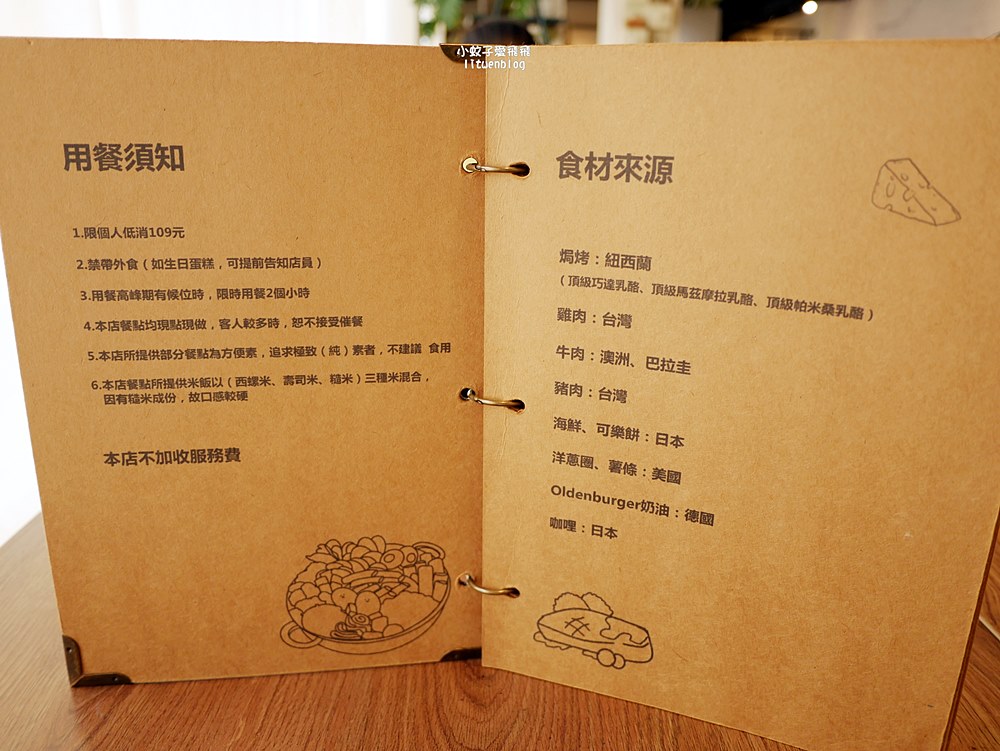 小蚊子愛飛飛
lituenblog
用餐須知
1.限個人低消109元
2.禁帶外食（如生日蛋糕，可提前告知店員）
3.用餐高峰期有候位時，限時用餐2個小時
4.本店餐點均現點現做，客人較多時，恕不接受催餐
5.本店所提供部分餐點為方便素，追求極致（純）素者，不建議 食用
6.本店餐點所提供米飯以（西螺米、壽司米、糙米）三種米混合，
因有糙米成份，故口感較硬
本店不加收服務費
食材來源
焗烤：紐西蘭
（頂級巧達乳酪、頂級馬茲摩拉乳酪、頂級帕米桑乳酪）
雞肉：台灣
牛肉：澳洲、巴拉圭
豬肉：台灣
海鮮、可樂餅：日本
洋蔥圈、薯條：美國
Oldenburger奶油：德國
咖哩：日本